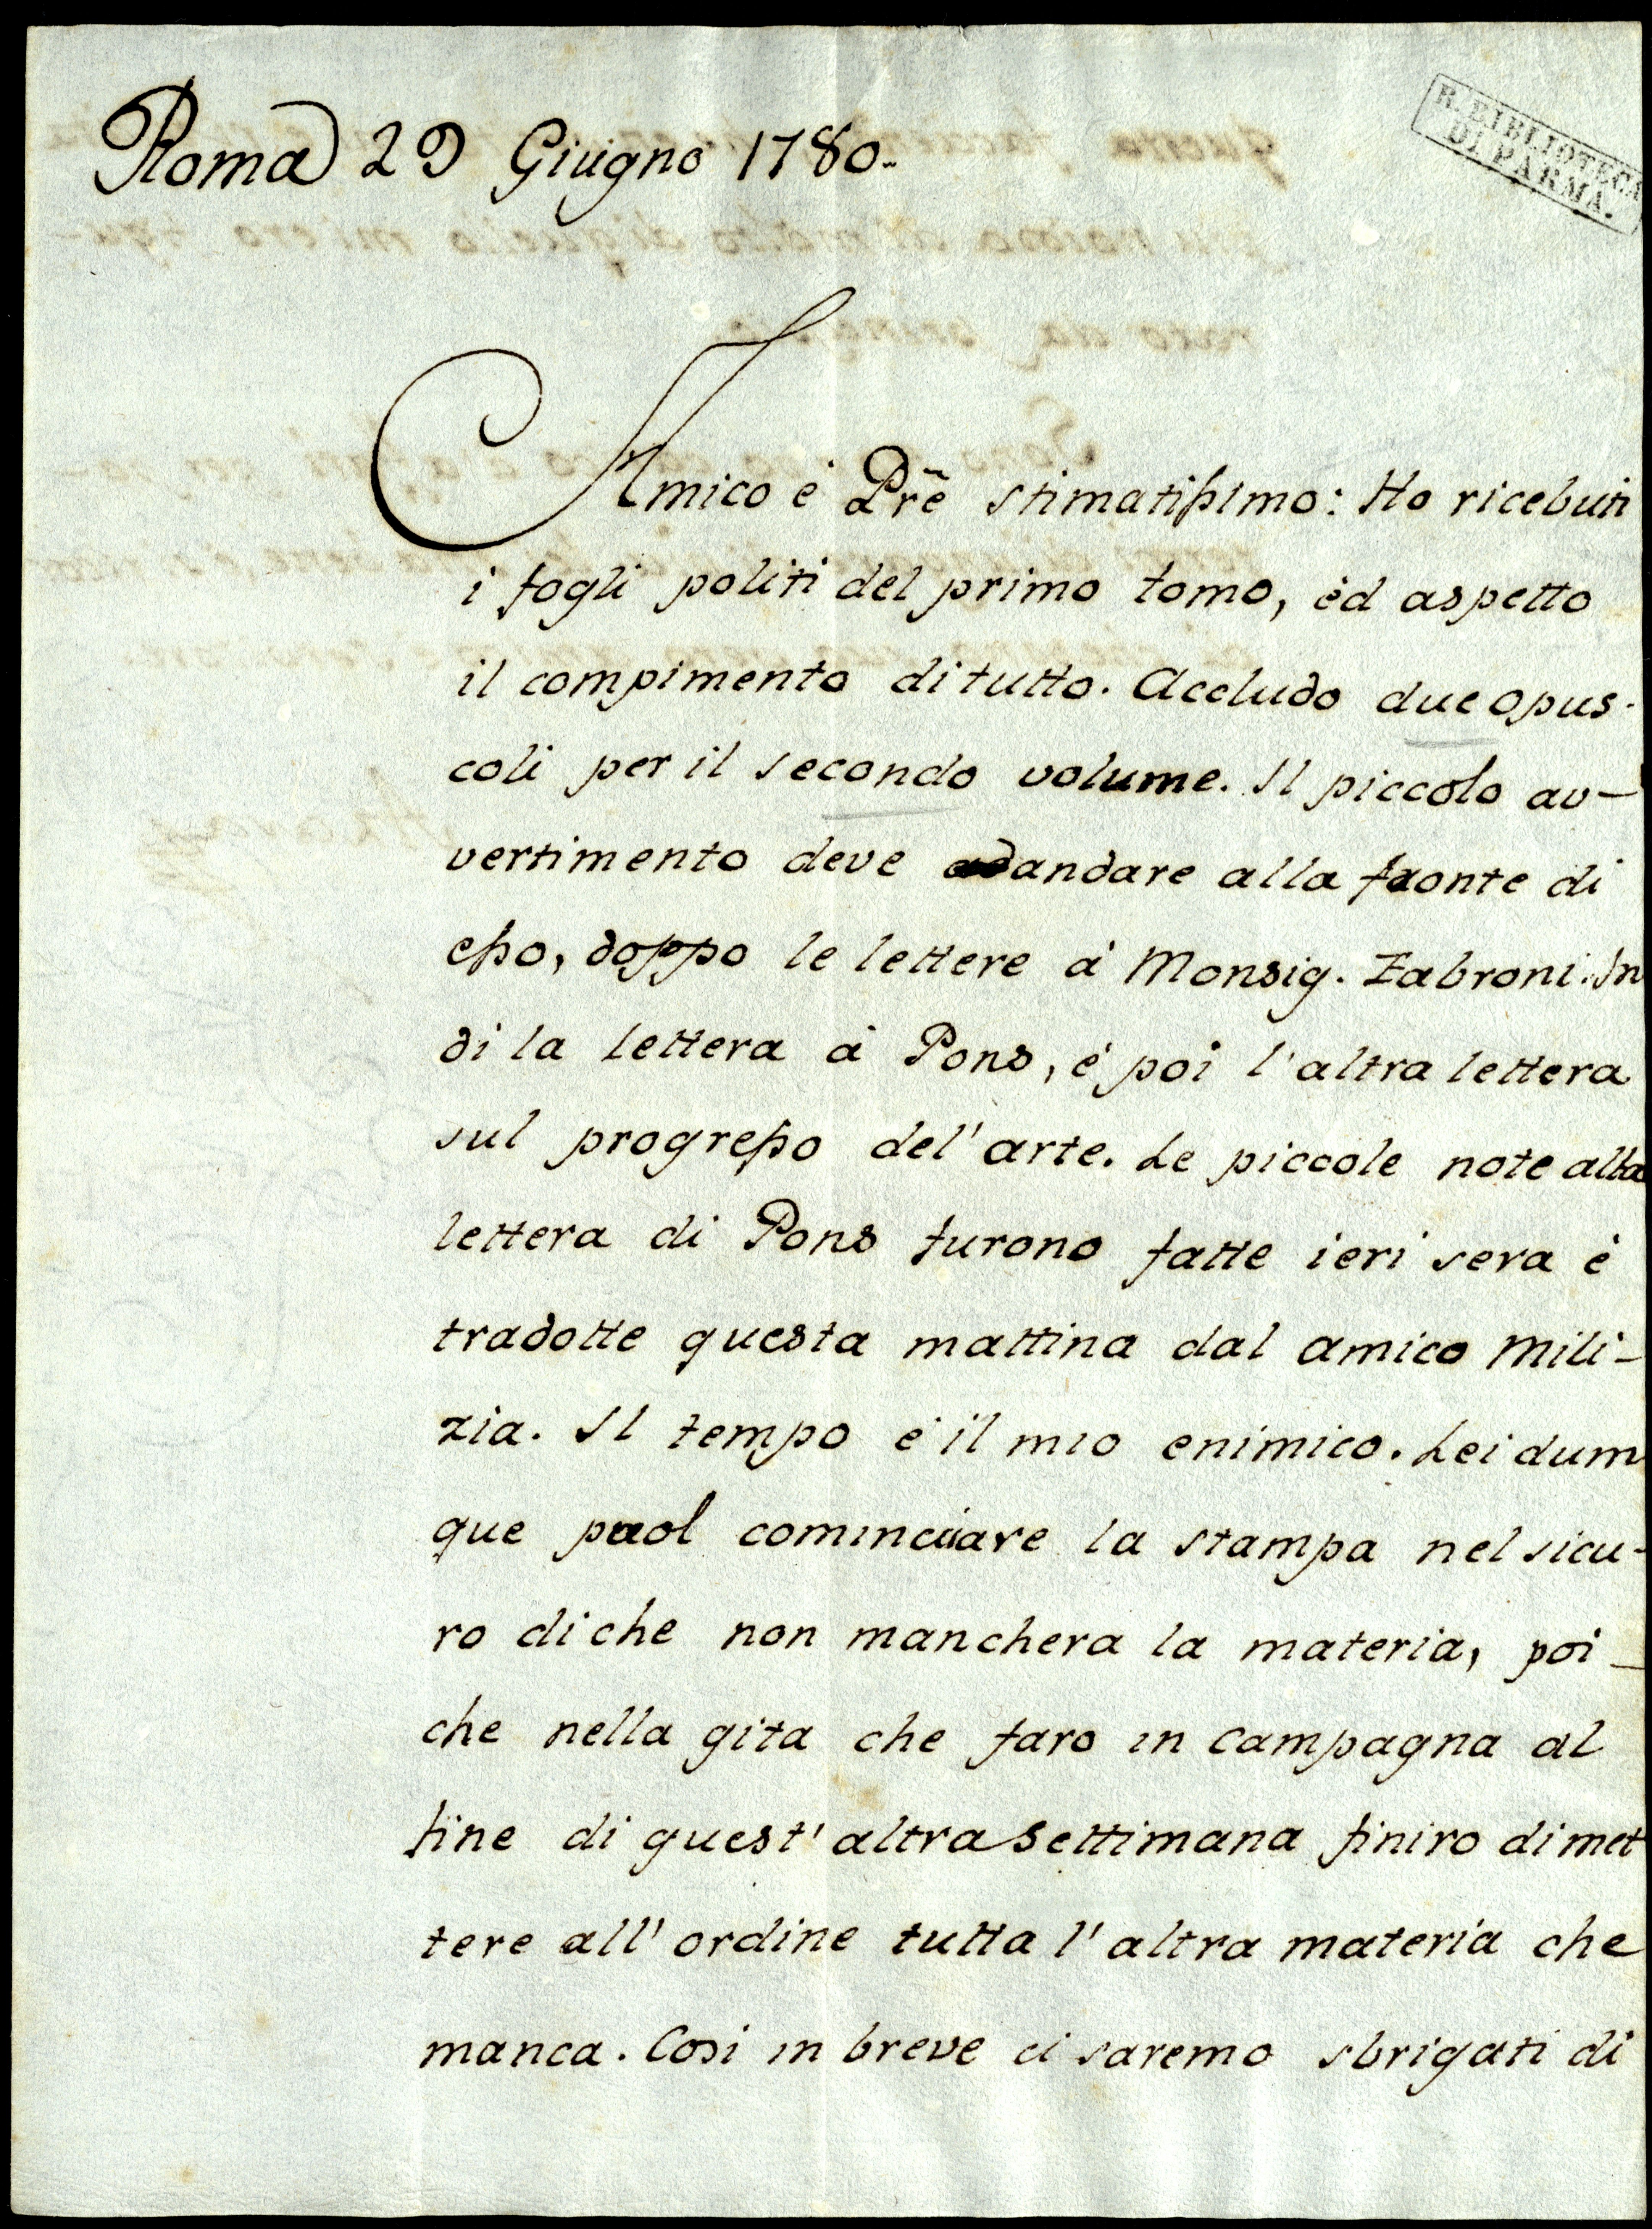 Roma 29 Giugno 1780.
R. BIBLIOTECA
DI PARMA.
Amico é Prẽ stimatissimo: Ho ricebuti
i fogli politi del primo tomo, èd aspetto
il compimento di tutto. Accludo due opus-
coli per il secondo volume. Il piccolo av-
vertimento deve andare alla fronte di
esso, doppo le lettere á Monsig. Fabroni. In
di la lettera á Pons, é poi l'altra lettera
sul progresso del'arte. Le piccole note alla
lettera di Pons furono fatte ieri sera è
tradotte questa mattina dal amico Mili-
zia. Il tempo é il mio enimico. Lei dum
que puol cominciare la stampa nel sicu-
ro di che non manchera la materia, poi-
che nella gita che faro in campagna al
fine di quest'altra settimana finiro di met
tere all'ordine tutta l'altra materia che
manca. Cosi in breve ci saremo sbrigati di